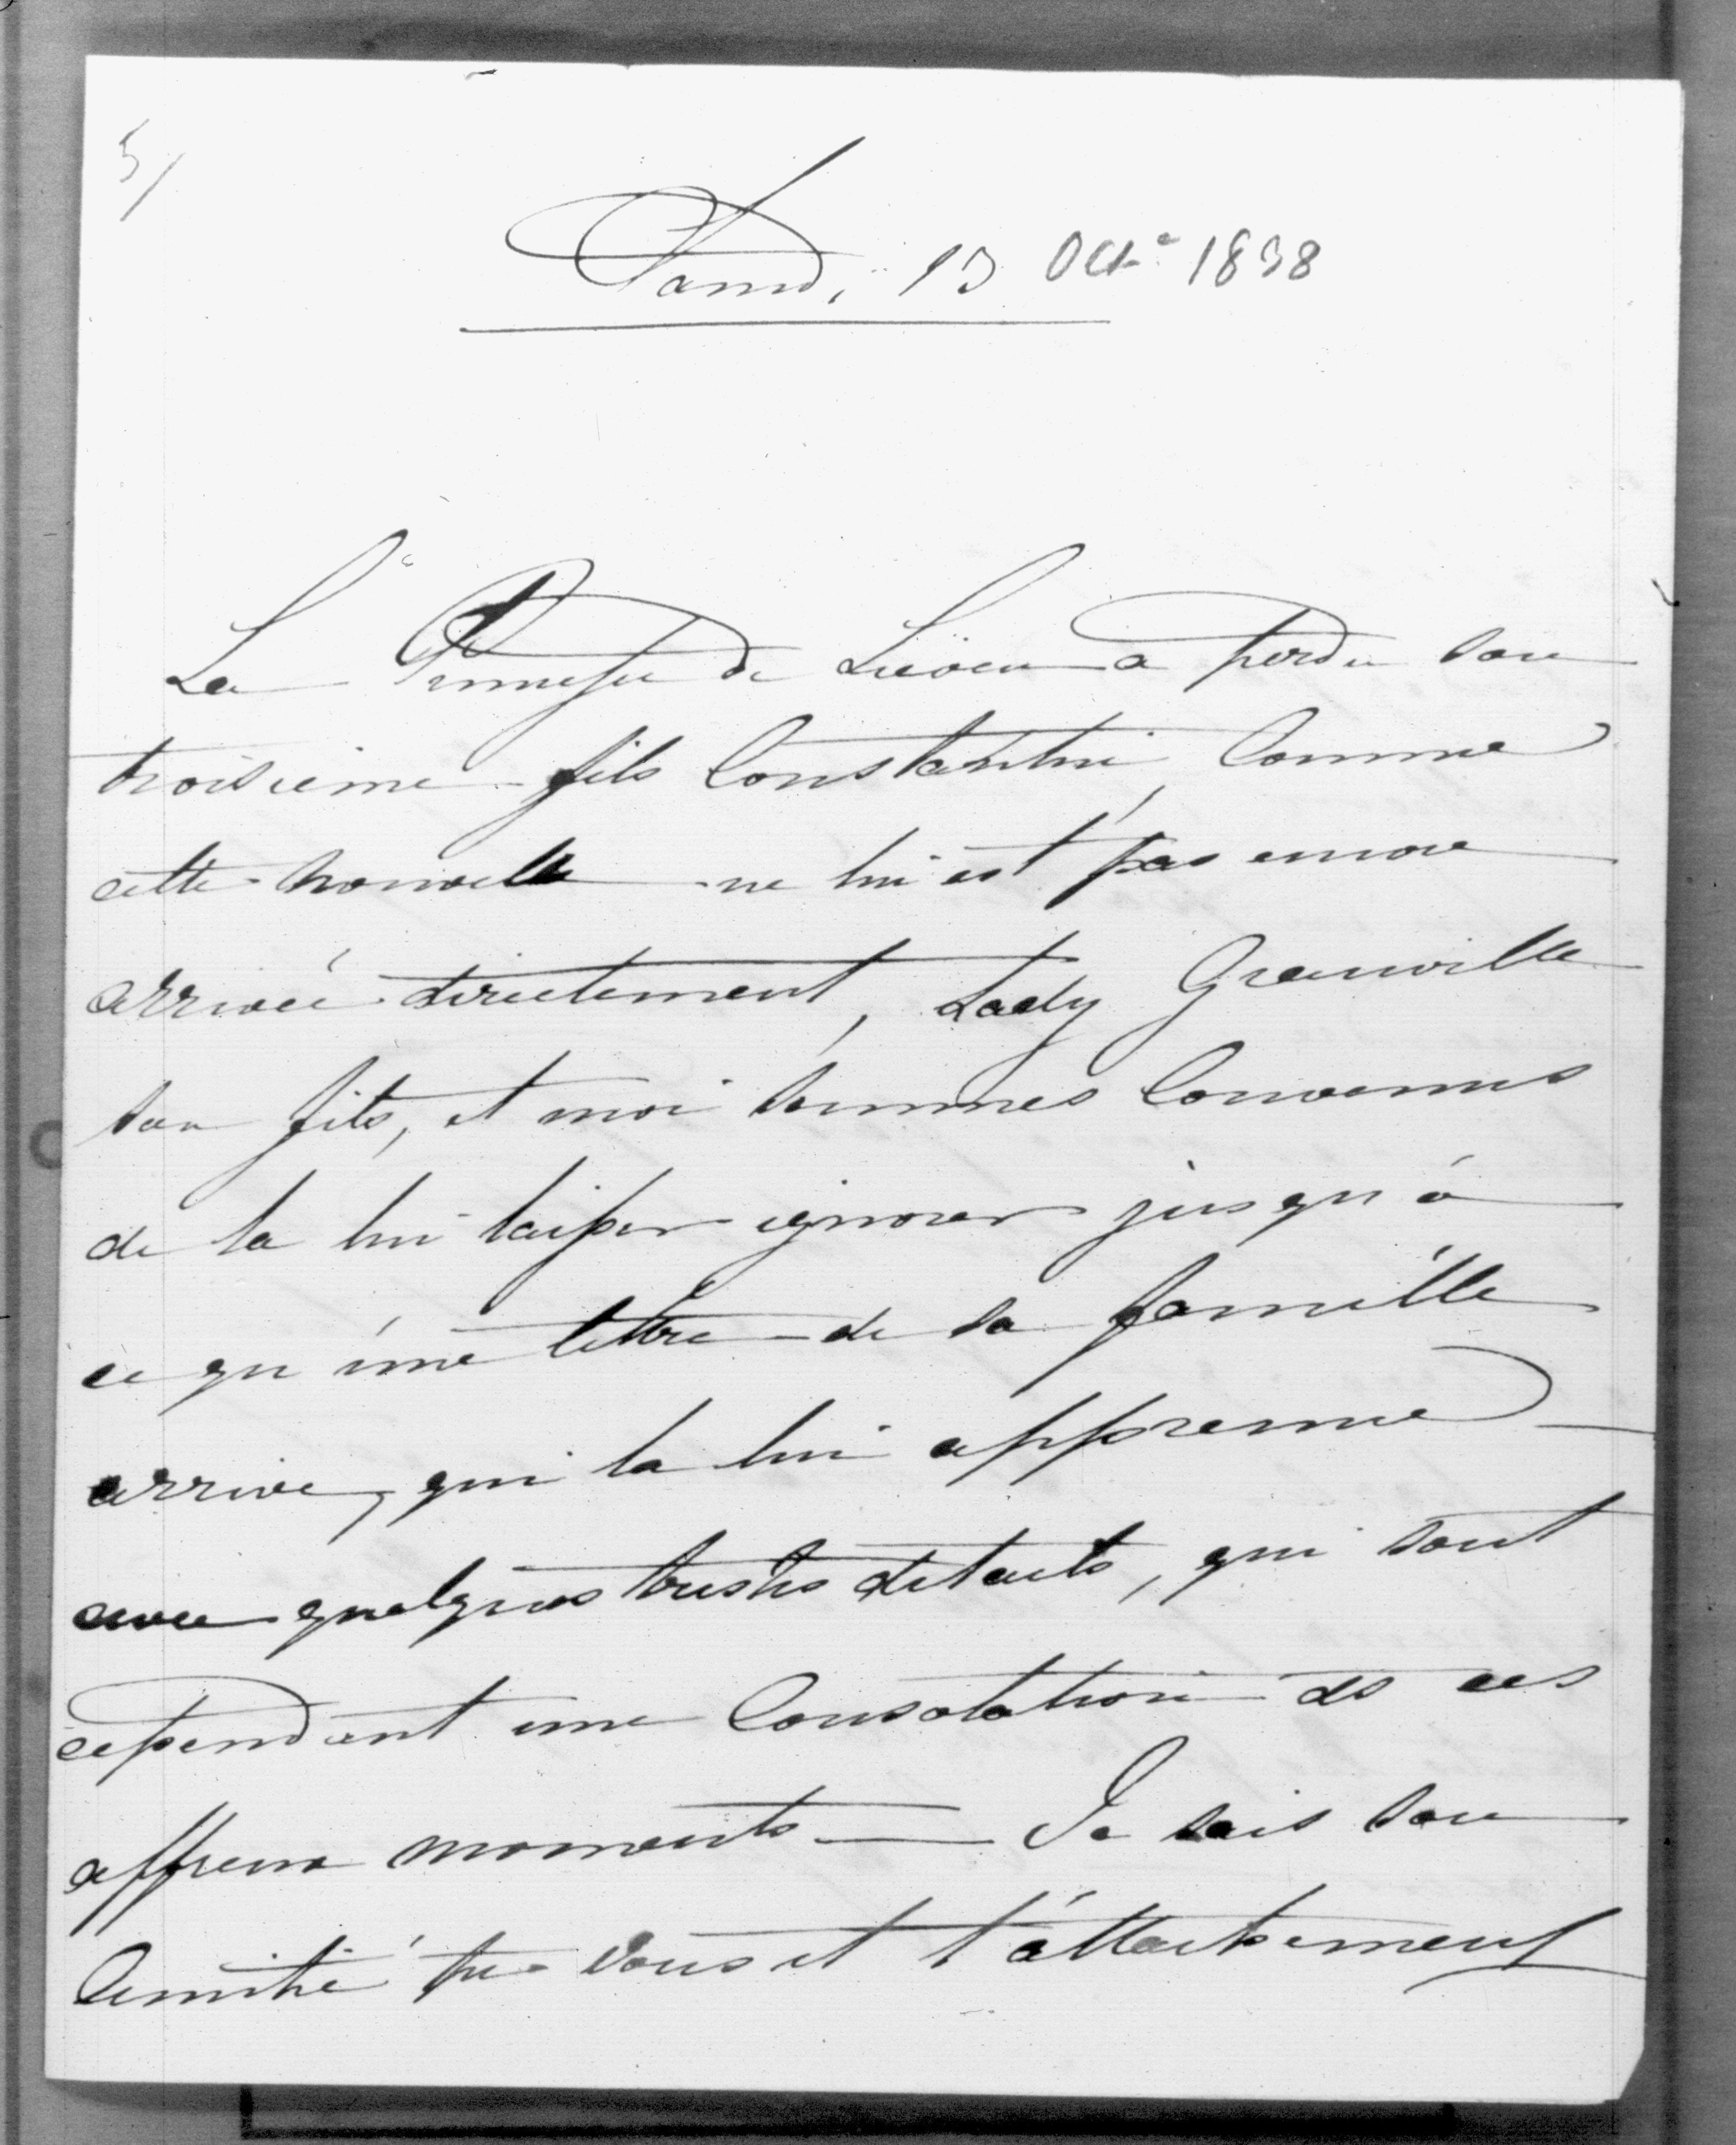 5/
Samedi 13 Octe 1838
La Princesse de Liéven a perdu son
troisième fils Constantin, comme
cette nouvelle ne lui est pas encore
arrivée directement, Lady Granville
son fils, et moi sommes convenus
de la lui laisser ignorer jusqu'à
ce qu'une lettre de sa famille
arrive, qui la lui apprenne
avec quelques tristes details, qui sont
cependant une consolation ds ces
affreux moments — Je sais son
amitié pr vous et l'attachement